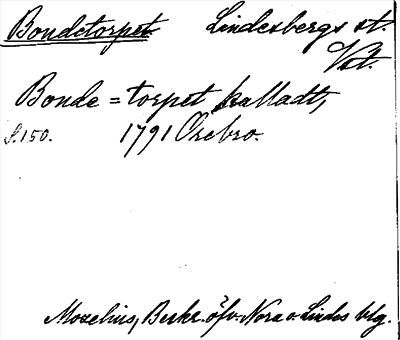 Bondetorpet Lindesbergs st.
Vstl.
Bonde = torpet kalladt,
S. 150. 1791 Örebro.
Moselius, Beskr. öfv. Nora o. Lindes blg.